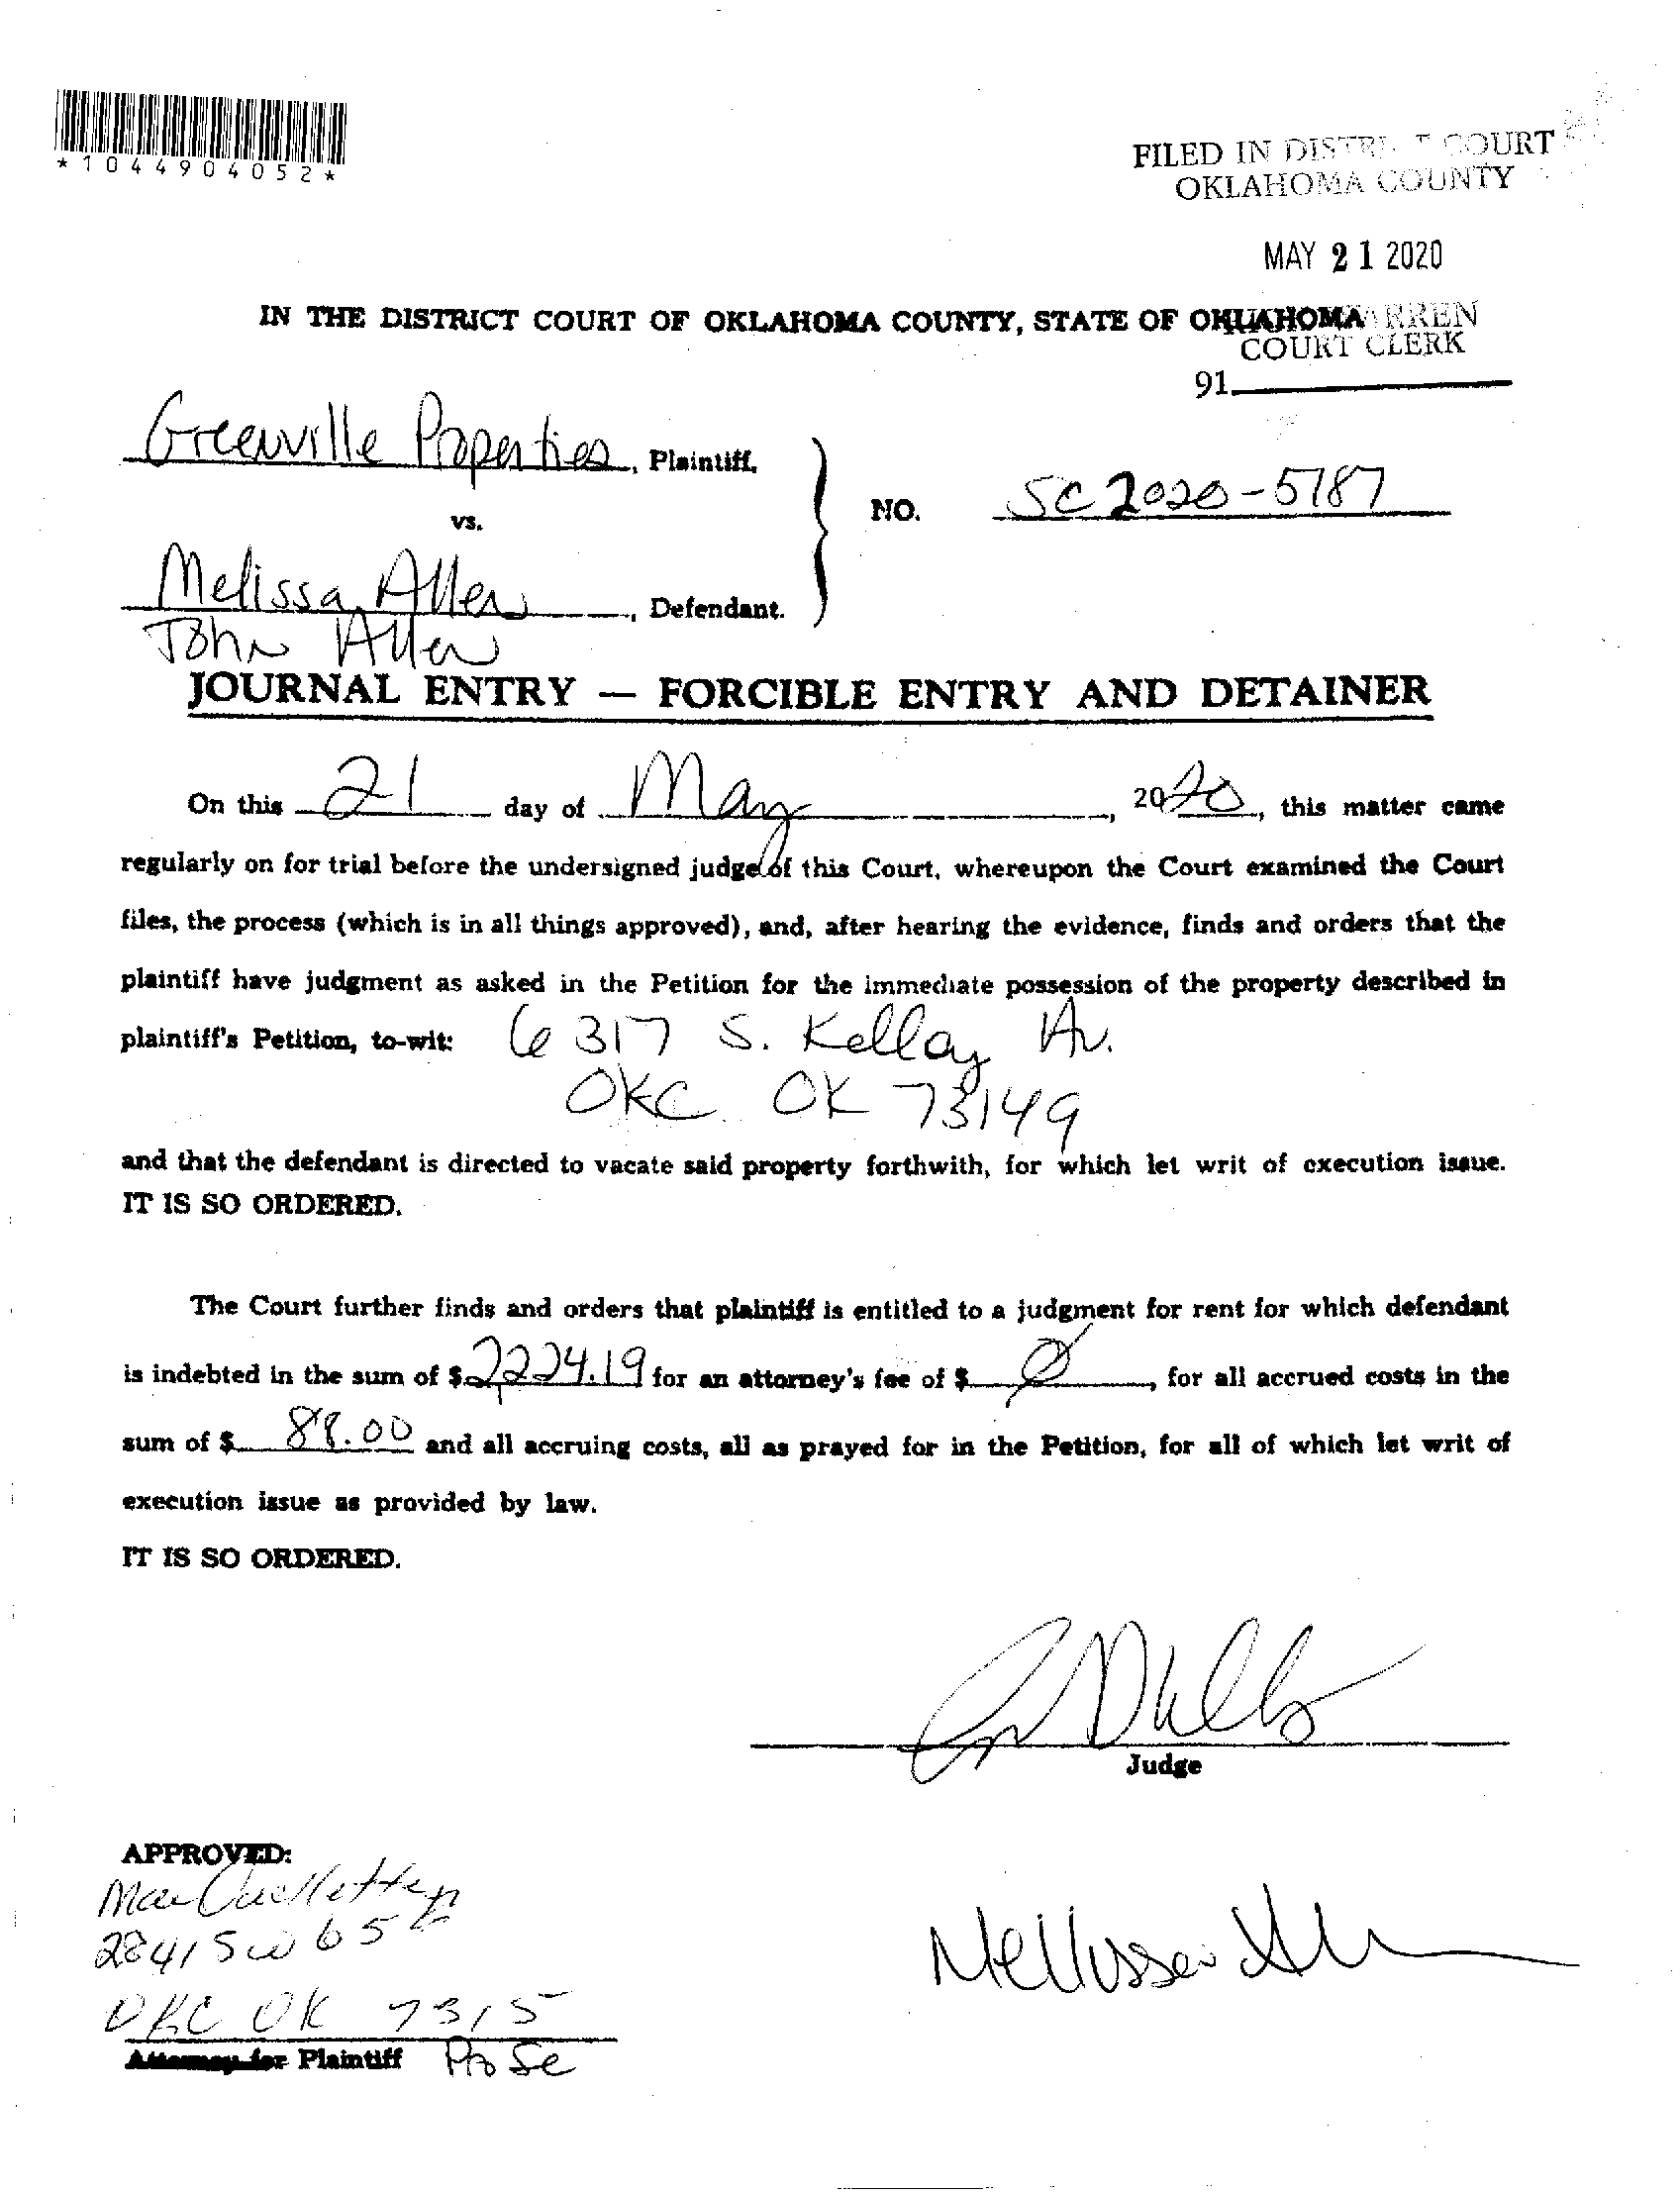 *1044904052*
FILED IN DISTRICT COURT
OKLAHOMA COUNTY
MAY 21 2020
IN THE DISTRICT COURT OF OKLAHOMA COUNTY, STATE OF OKLAHOMA
COURT CLERK
91
Greenville Properties, Plaintiff,
vs.
NO. SC 2020-5787
Melissa Allen, Defendant.
John Allen
JOURNAL ENTRY — FORCIBLE ENTRY AND DETAINER
On this 21 day of May, 2020, this matter came
regularly on for trial before the undersigned judge of this Court, whereupon the Court examined the Court
files, the process (which is in all things approved), and, after hearing the evidence, finds and orders that the
plaintiff have judgment as asked in the Petition for the immediate possession of the property described in
plaintiff's Petition, to-wit: 6317 S. Kelley Av.
OKC OK 73149
and that the defendant is directed to vacate said property forthwith, for which let writ of execution issue.
IT IS SO ORDERED.
The Court further finds and orders that plaintiff is entitled to a judgment for rent for which defendant
is indebted in the sum of $2224.19 for an attorney's fee of $ Ø, for all accrued costs in the
sum of $ 88.00 and all accruing costs, all as prayed for in the Petition, for all of which let writ of
execution issue as provided by law.
IT IS SO ORDERED.
Judge
APPROVED:
2841 SW 65
OKC OK 7315
Attorney for Plaintiff Pro Se